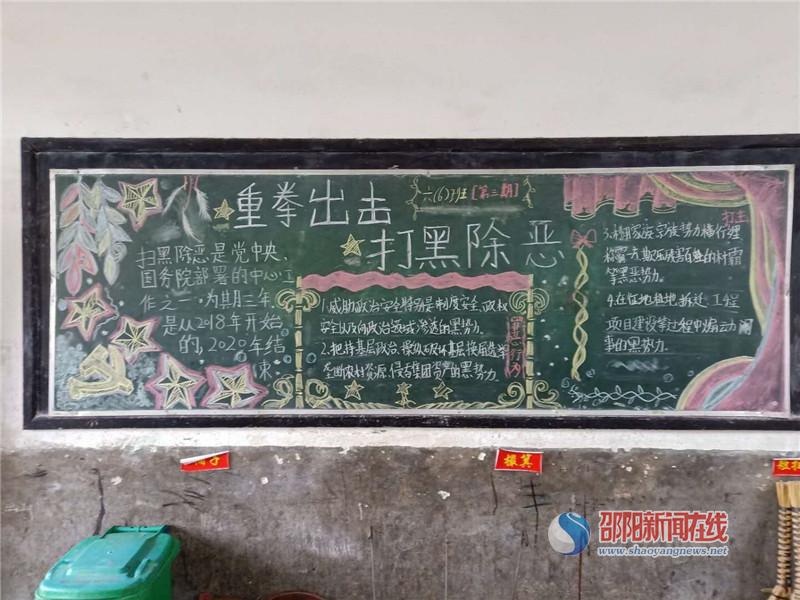 重拳出击
六(6)班【第三期】
打黑除恶
扫黑除恶是党中央、
国务院部署的中心工
作之一,为期三年,
是从2018年开始
的,2020年结
束.
1.威胁政治安全特别是制度安全、政权
安全以及向政治领域渗透的黑势力.
2.把持基层政治、操纵破坏基层换届选举
农村资源、侵占集团资产的黑势力.
罪恶行为
打击
3.利用家族宗族势力横行
霸一方欺压残害百姓的村霸
等黑恶势力.
4.在征地、租地、拆迁、工程
项目建设等过程中煽动闹
事的黑势力.
撮箕
邵阳新闻在线
www.shaoyangnews.net